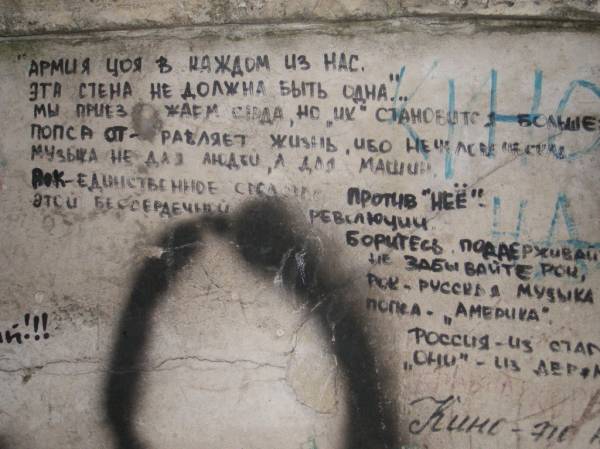 "АРМИЯ ЦОЯ В КАЖДОМ ИЗ НАС.
ЭТА СТЕНА НЕ ДОЛЖНА БЫТЬ ОДНА!"
МЫ ПРИЕЗЖАЕМ СЮДА, НО „ИХ" СТАНОВИТСЯ БОЛЬШЕ.
ПОПСА ОТРАВЛЯЕТ ЖИЗНЬ, ИБО
МУЗЫКА НЕ ДЛЯ ЛЮДЕЙ, А ДЛЯ МАШИН.
РОК-ЕДИНСТВЕННОЕ
ПРОТИВ "НЕЁ"!
ЭТОЙ БЕССЕРДЕЧНОЙ РЕВОЛЮЦИИ.
БОРИТЕСЬ, ПОДДЕРЖИВАЙ
НЕ ЗАБЫВАЙТЕ РОК,
РОК-РУССКАЯ МУЗЫКА
ПОПСА-„АМЕРИКА".
РОССИЯ-ИЗ СТАЛ
„ОНИ"-ИЗ ДЕР
ий!!!
КИНО
Кино-это